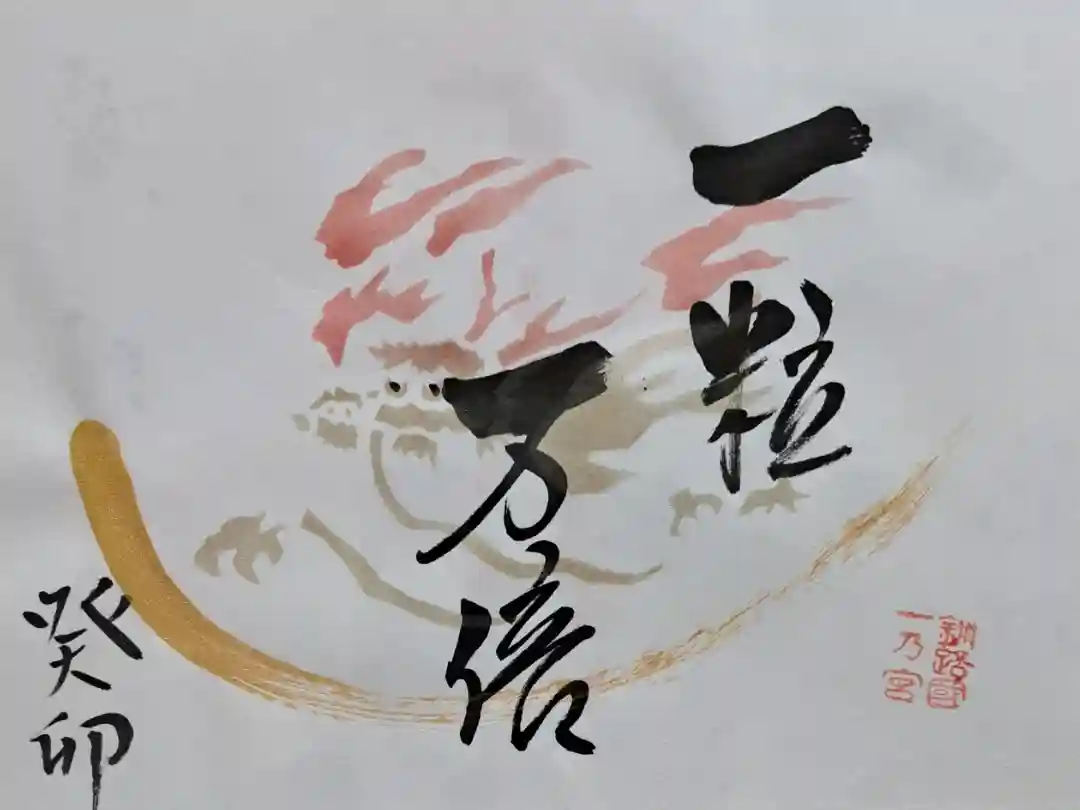 一粒
万倍
癸卯
釧路國
一乃宮